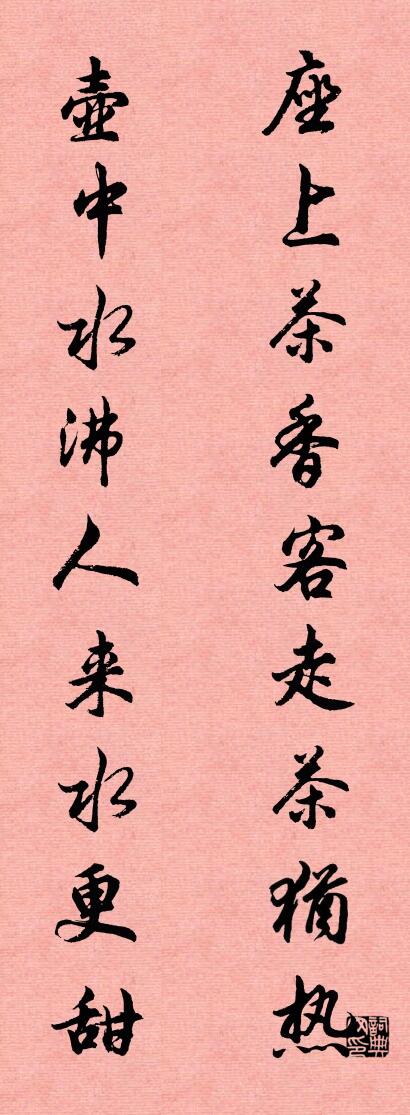 座上茶香客走茶猶热
壶中水沸人来水更甜